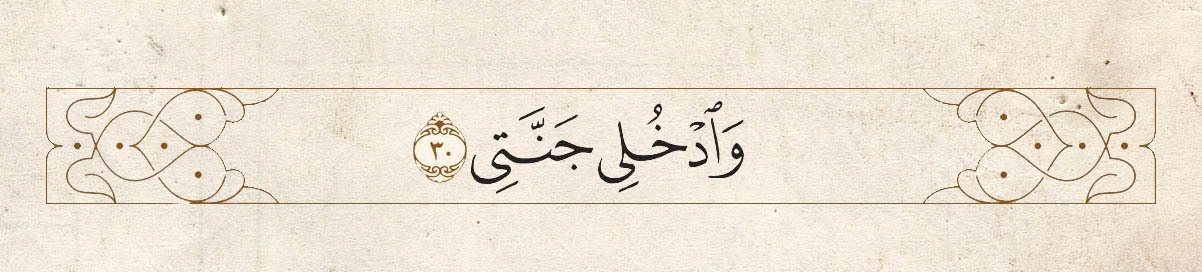 وَٱدْخُلِى جَنَّتِى ٣٠